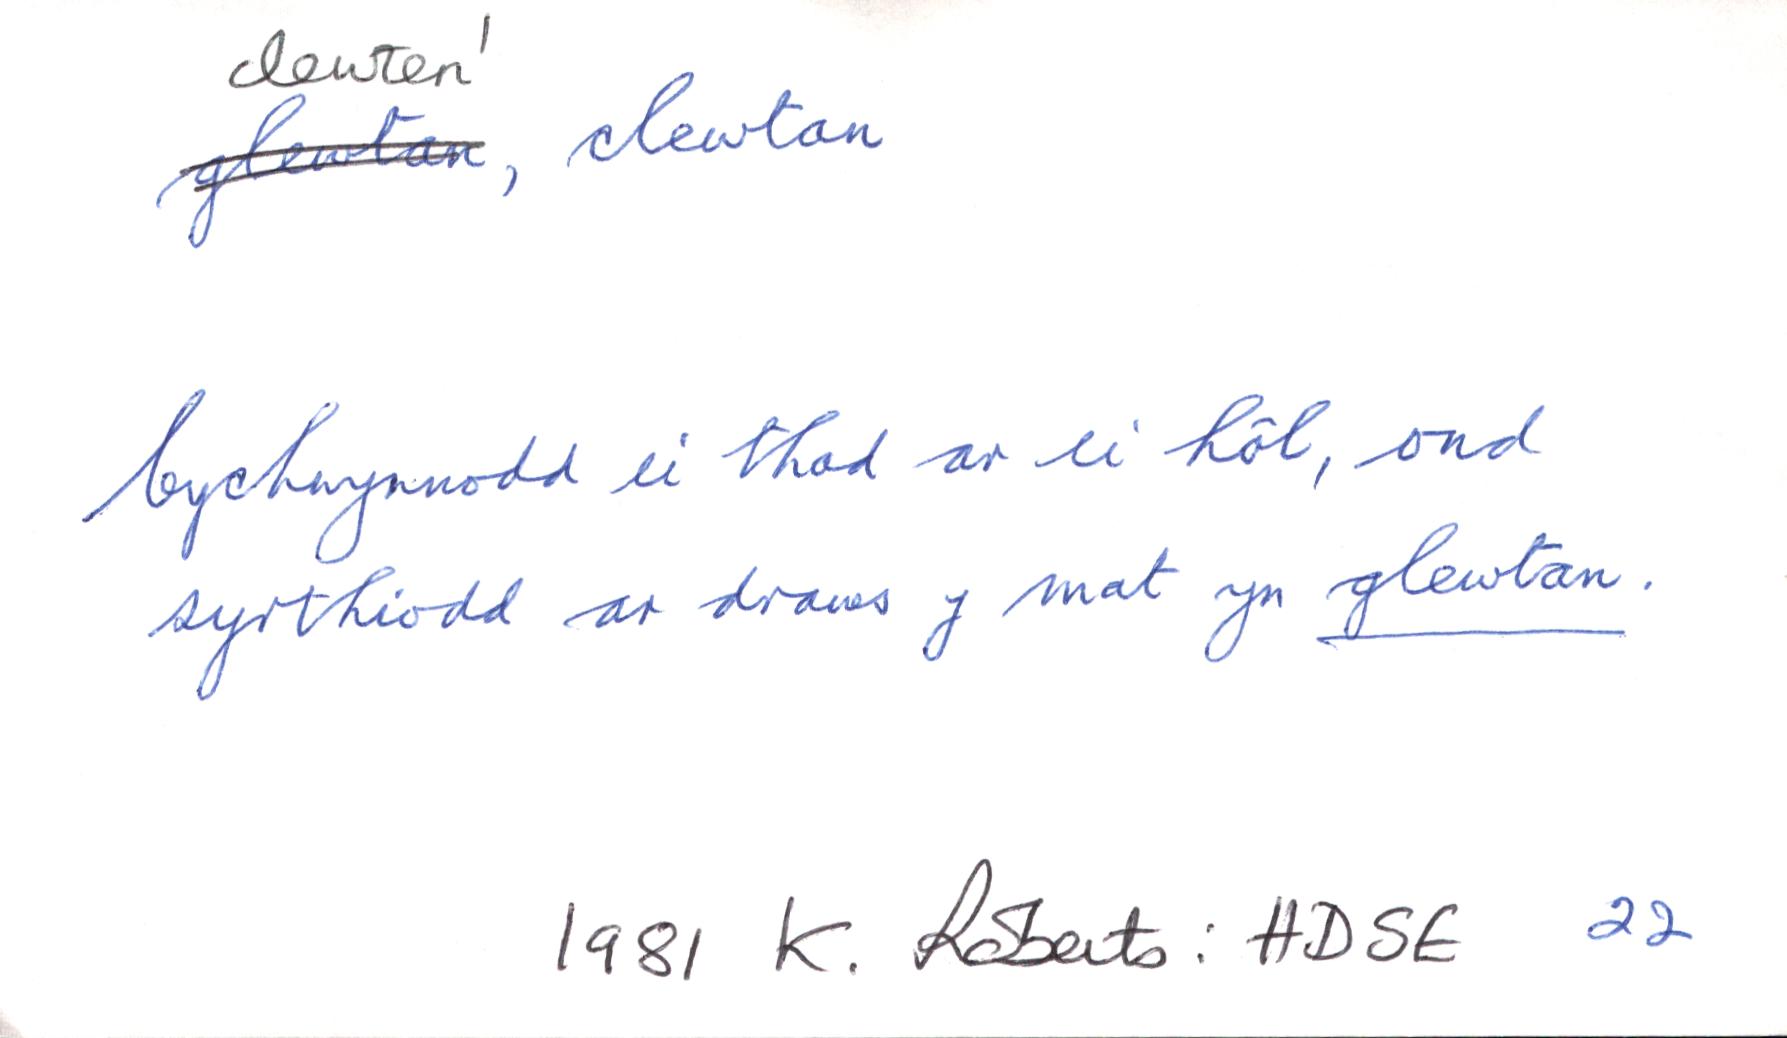 clewten¹
glewtan, clewtan
Cychwynnodd ei thad ar ei hôl, ond
syrthiodd ar draws y mat yn glewtan.
1981 K. Roberts: HDSE 22